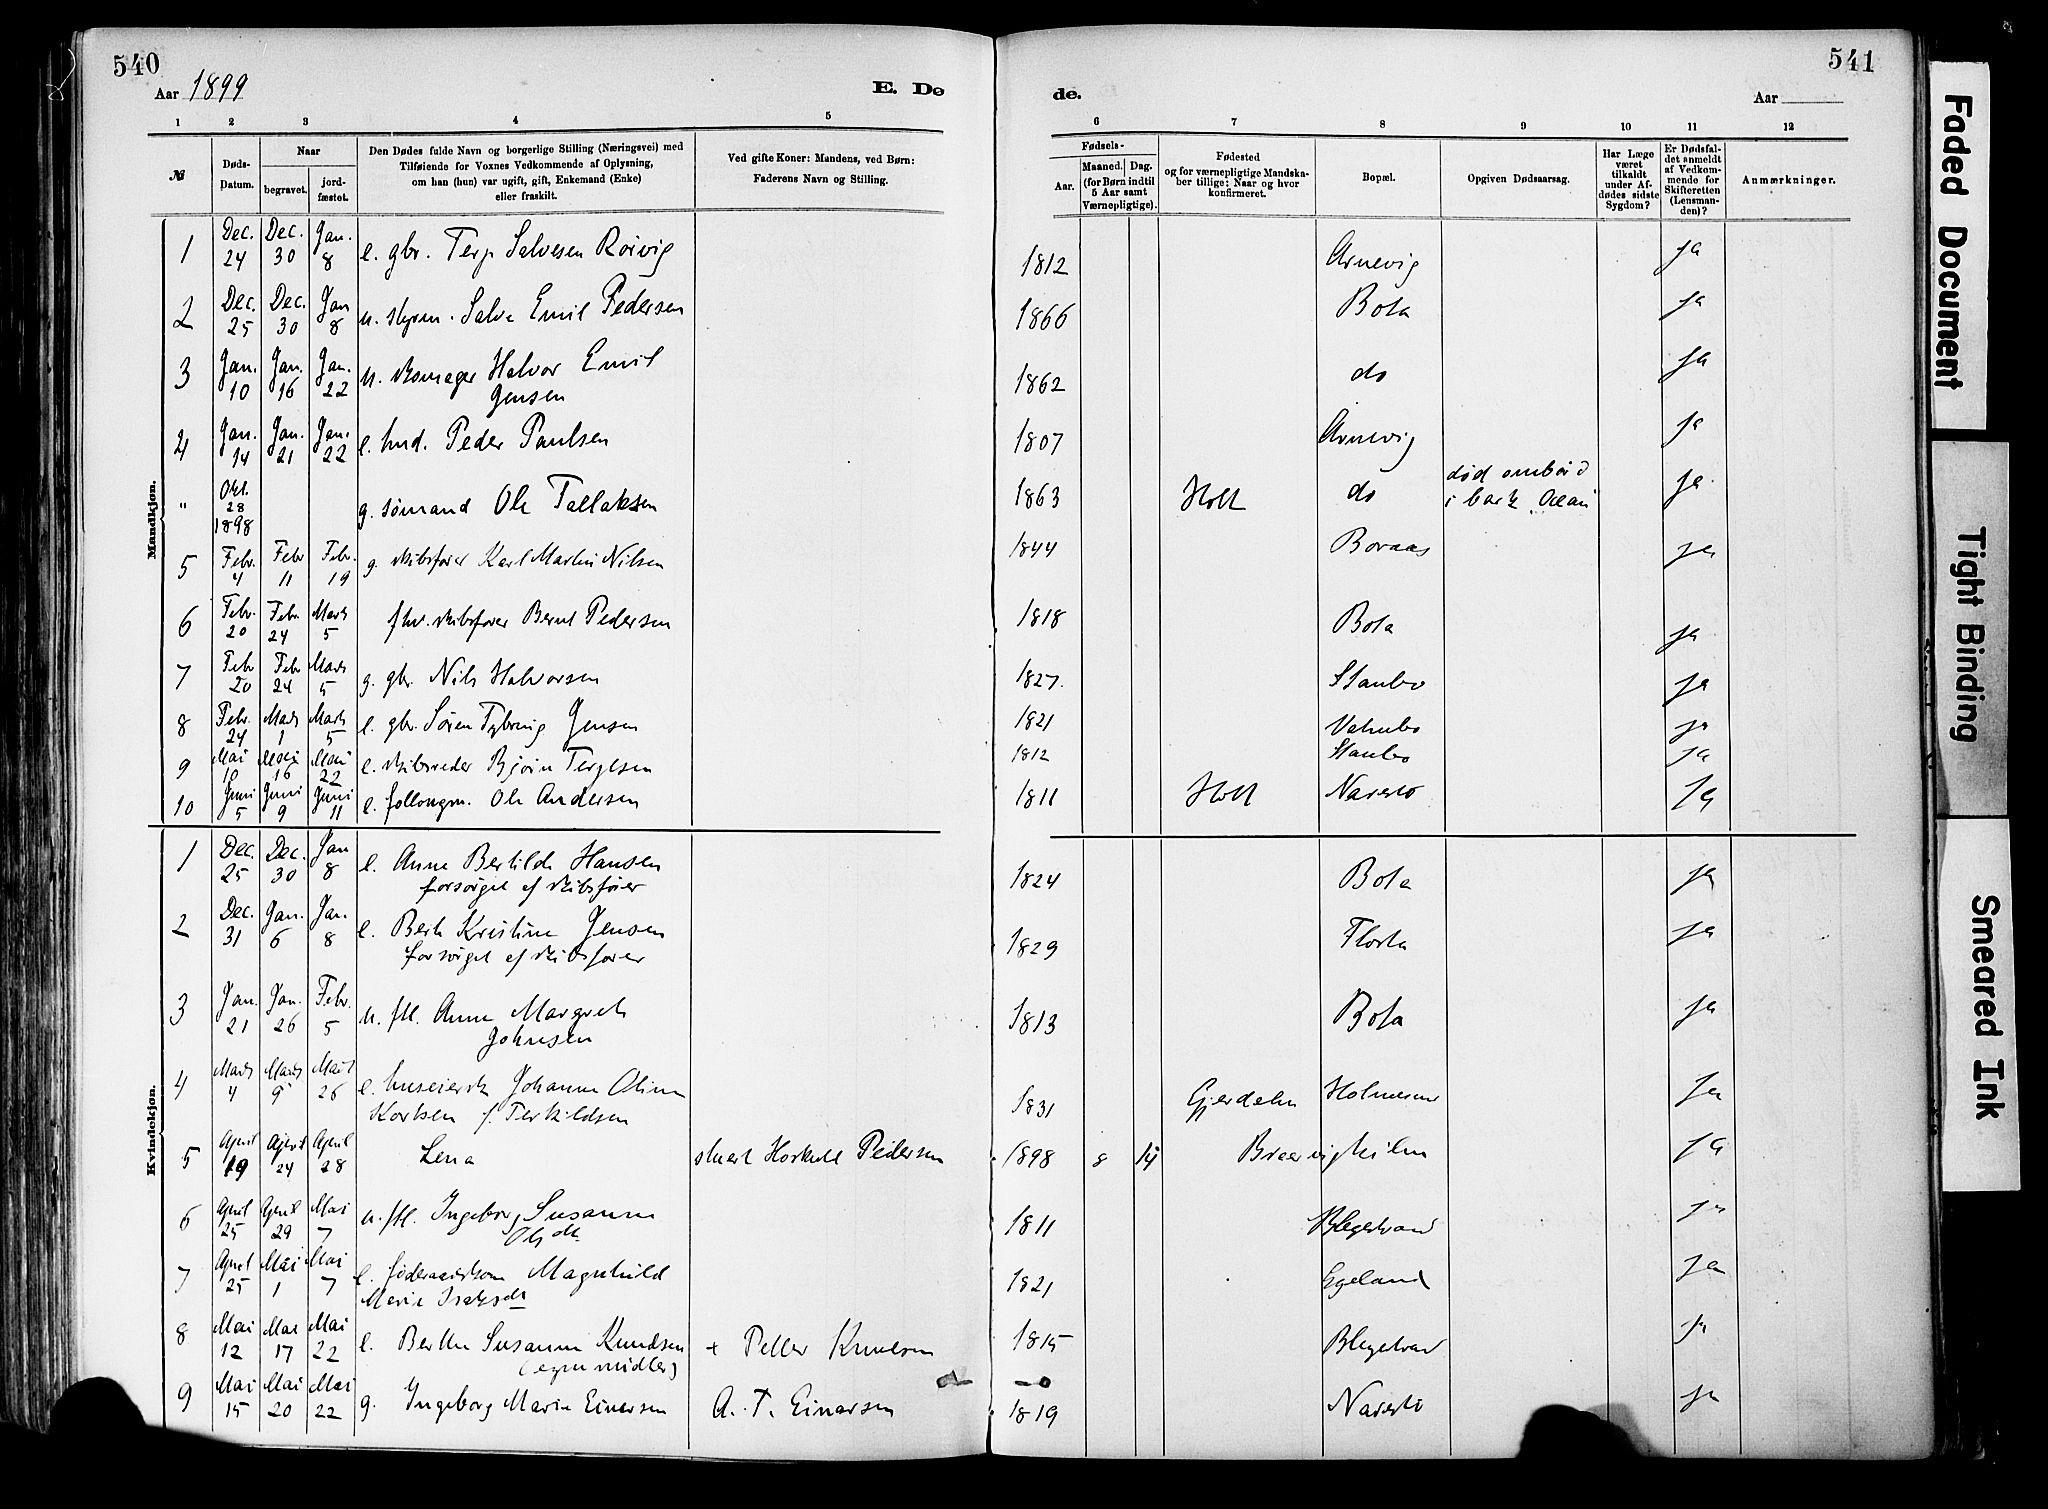 540
Aar 1899
E. De
de.
541
Aar
1 2 3 4 5 6 7 8 9 10 11 12
№
Døds-Datum.
Naar
begravet.
jord-fæstet.
Den Dødes fulde Navn og borgerlige Stilling (Næringsvei) med
Tilføiende for Voxnes Vedkommende af Oplysning,
om han (hun) var ugift, gift, Enkemand (Enke)
eller fraskilt.
Ved gifte Koner: Mandens, ved Børn:
Faderens Navn og Stilling.
Fødsels-
Aar.
Maaned. Dag.
(for Børn indtil
5 Aar samt
Værnepligtige).
Fødested
og for værnepligtige Mandska-
ber tillige: Naar og hvor
konfirmeret.
Bopæl.
Opgiven Dødsaarsag.
Har Læge
været
tilkaldt
under Af-
dødes sidste
Sygdom?
Er Dødsfal-
det anmeldt
af Vedkom-
mende for
Skifteretten
(Lensman-
den)?
Anmærkninger.
Mandkjøn.
1 Dec. 24 Dec. 30 Jan. 8 e. gbr. Terje Salvesen Röivig 1812 Arnevig ja
2 Dec. 25 Dec. 30 Jan 8 u. styrm. Salve Emil Pedersen 1866 Bota ja
3 Jan. 10 Jan. 16 Jan. 22 u. skomager Halvor Emil
Jensen 1862 do ja
4 Jan. 14 Jan. 21 Jan. 22 e. ind. Peder Paulsen 1807 Arnevig ja
" Okt. 28 1898 g. sømand Ole Tallaksen 1863 Holt do død ombord
i bark Ocean ja.
5 Febr. 4 Febr 11 Febr. 19 g. skibsfører Karl Martin Nilsen 1844 Boraas ja
6 Febr. 20 Febr. 24 Marts 5 fhv. skibsfører Bernt Pedersen 1818 Bota ja
7 Febr 20 Febr 24 Marts 5 g. gbr. Nils Halvorsen 1827. Staubo ja
8 Febr. 24 Marts 1 Marts 5 e. gbr. Søren Tybring Jensen 1821 Valnebo ja
9 Mai 10 Mai 16 Mai 22 e. skibsreder Bjørn Terjesen 1812 Staubo ja
10 Juni 5 Juni 9 Juni 11 e. Ole Andersen 1811 Holt Narestø ja
Kvindekjøn.
1 Dec. 25 Dec. 30 Jan 8 e. Anne Bertilde Hansen
forsørget af skibsfører 1824 Bota ja
2 Dec. 31 Jan. 6 Jan. 8 e. Berte Kristine Jensen
forsørget af skibsfører 1829 Flosta ja
3 Jan. 21 Jan. 26 Febr. 5 u. ftl. Anne Margrete
Johnsen 1813 Bota ja
4 Marts 4 Marts 9 Marts 26 e. huseierske Johanne Oline
Karlsen f. Terkildsen 1831 Gjerdalen Holmesund ja
5 April 19 April 24 April 28 Lena stuert Horkell Pedersen 1898 8 14 Braarvigkilen ja
6 April 25 April 29 Mai 7 u. ftl. Ingeborg Susanne
Olsdt. 1811 Blegestrand ja
7 April 25 Mai 1 Mai 7 e. føderaadskone Magnhild
Marie Isaksdt 1821 Egeland ja
8 Mai 12 Mai 17 Mai 22 e. Berthe Susanne Knudsen
(egne midler) + Petter Knudsen 1815 Blegestrand ja
9 Mai 15 Mai 20 Mai 22 g. Ingeborg Marie Einersen A. T. Einarsen 1819 Narestø ja
Faded Document
Tight Binding
Smeared Ink